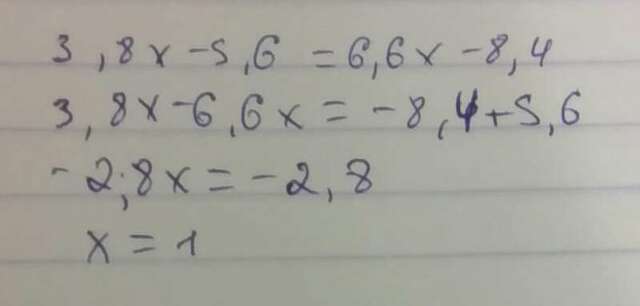 3,8x-5,6=6,6x-8,4
3,8x-6,6x=-8,4+5,6
-2,8x=-2,8
x=1